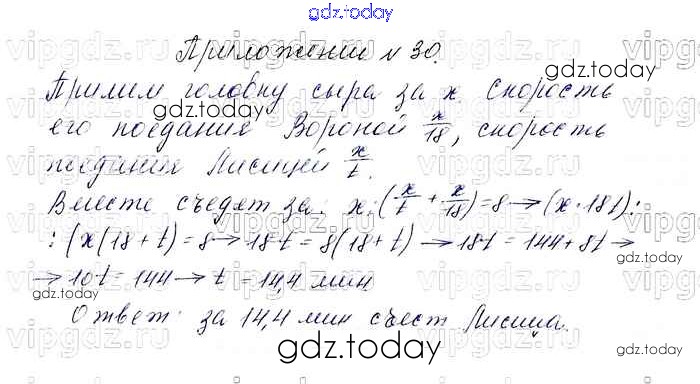 gdz.today
Приложении № 30.
gdz.today
Примем головку сыра за x. Скорость
его поедания Вороной x/18, скорость
поедания Лисицей x/t.
Вместе съедят за: x:(x/t + x/18)=8→(x·18t):
:(x(18+t)=8→18t=8(18+t)→18t=144+8t→
→10t=144→t=14,4 мин
Ответ: за 14,4 мин съест Лисица.
gdz.today
vipgdz.ru